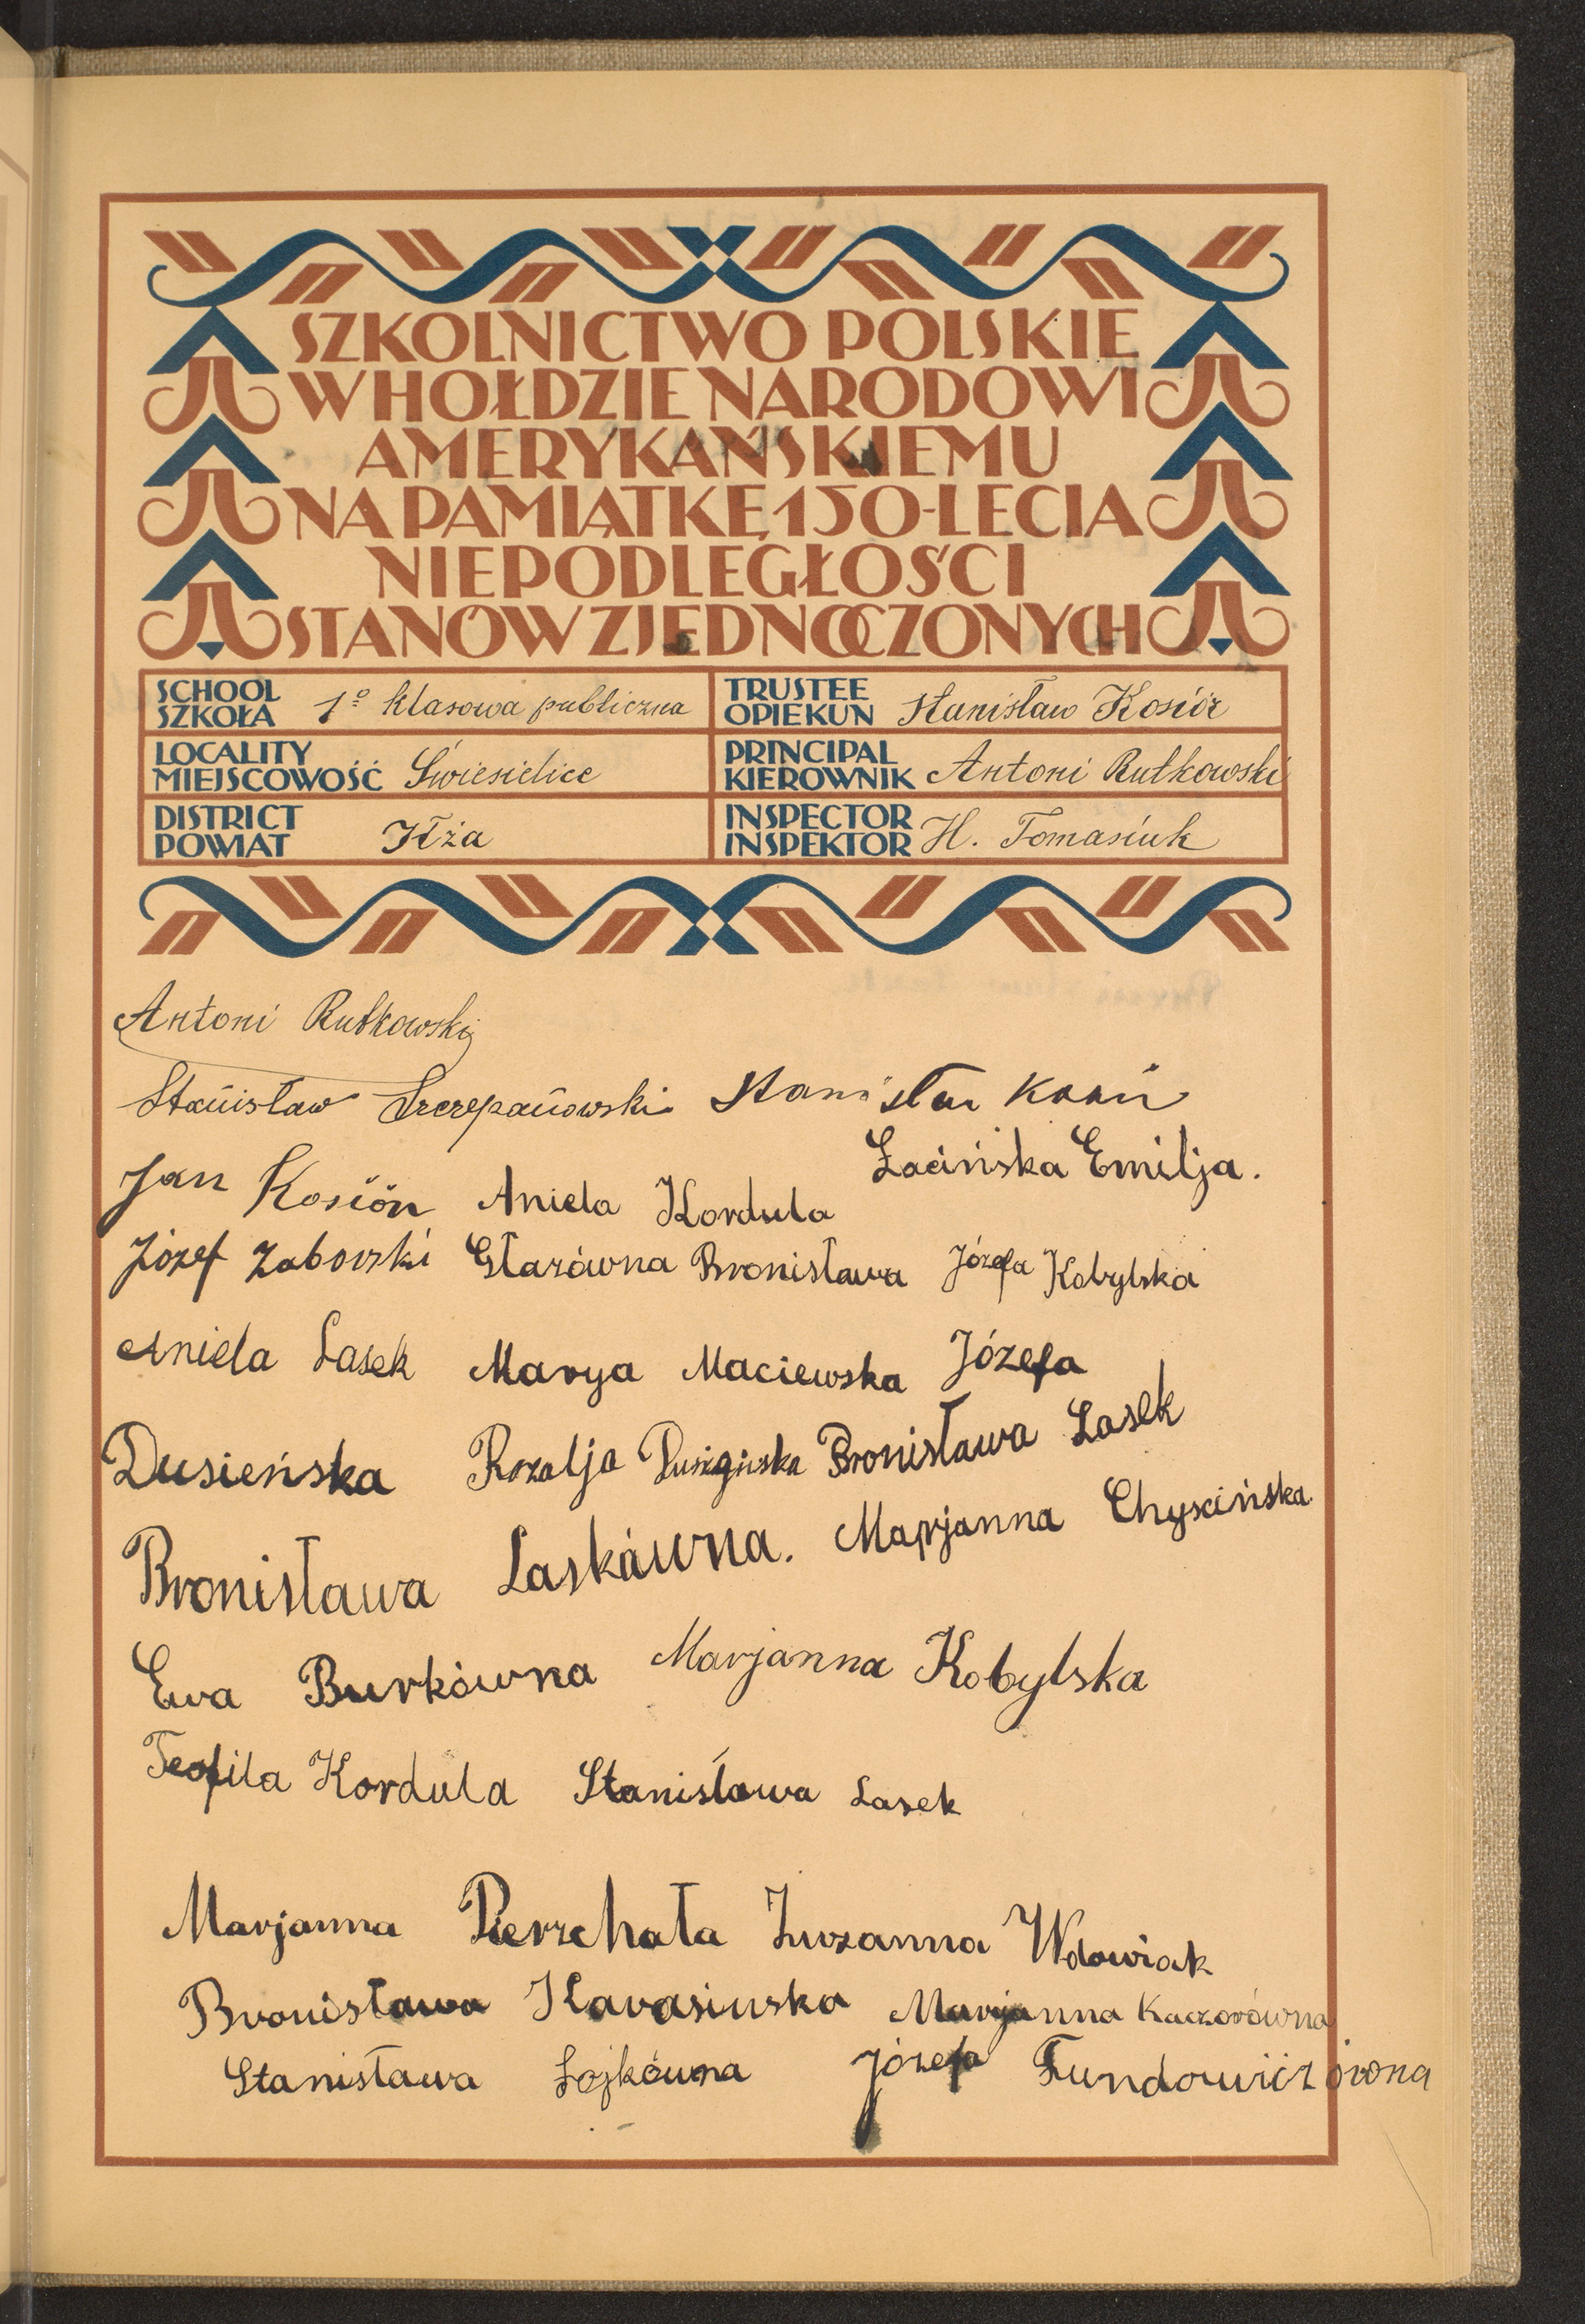 SZKOLNICTWO POLSKIE
W HOŁDZIE NARODOWI
AMERYKAŃSKIEMU
NA PAMIĄTKĘ 150-LECIA
NIEPODLEGŁOŚCI
STANÓW ZJEDNOCZONYCH
SCHOOL
SZKOŁA 1º klasowa publiczna
TRUSTEE
OPIEKUN Stanisław Kosiór
LOCALITY
MIEJSCOWOŚĆ Świesielice
PRINCIPAL
KIEROWNIK Antoni Rutkowski
DISTRICT
POWIAT Iłża
INSPECTOR
INSPEKTOR H. Tomasiuk
Antoni Rutkowski
Stanisław Szczepanowski Stanisław
Łacińska Emilja.
Jan Kosiór Aniela Kordula
Józef Zaborski Bronisława Józefa Kobylska
Aniela Lasek Marya Maciewska Józefa
Dusieńska Rozalja Bronisława Lasek
Bronisława Laskówna. Marjanna Chyscińska.
Ewa Burkówna Marjanna Kobylska
Teofila Kordula Stanisława Lasek
Marjanna Pierzchała Zuzanna Wdowiak
Bronisława Karasinska Marjanna Kaczorówna
Stanisława Łojkówna Józefa Fundowiczówna